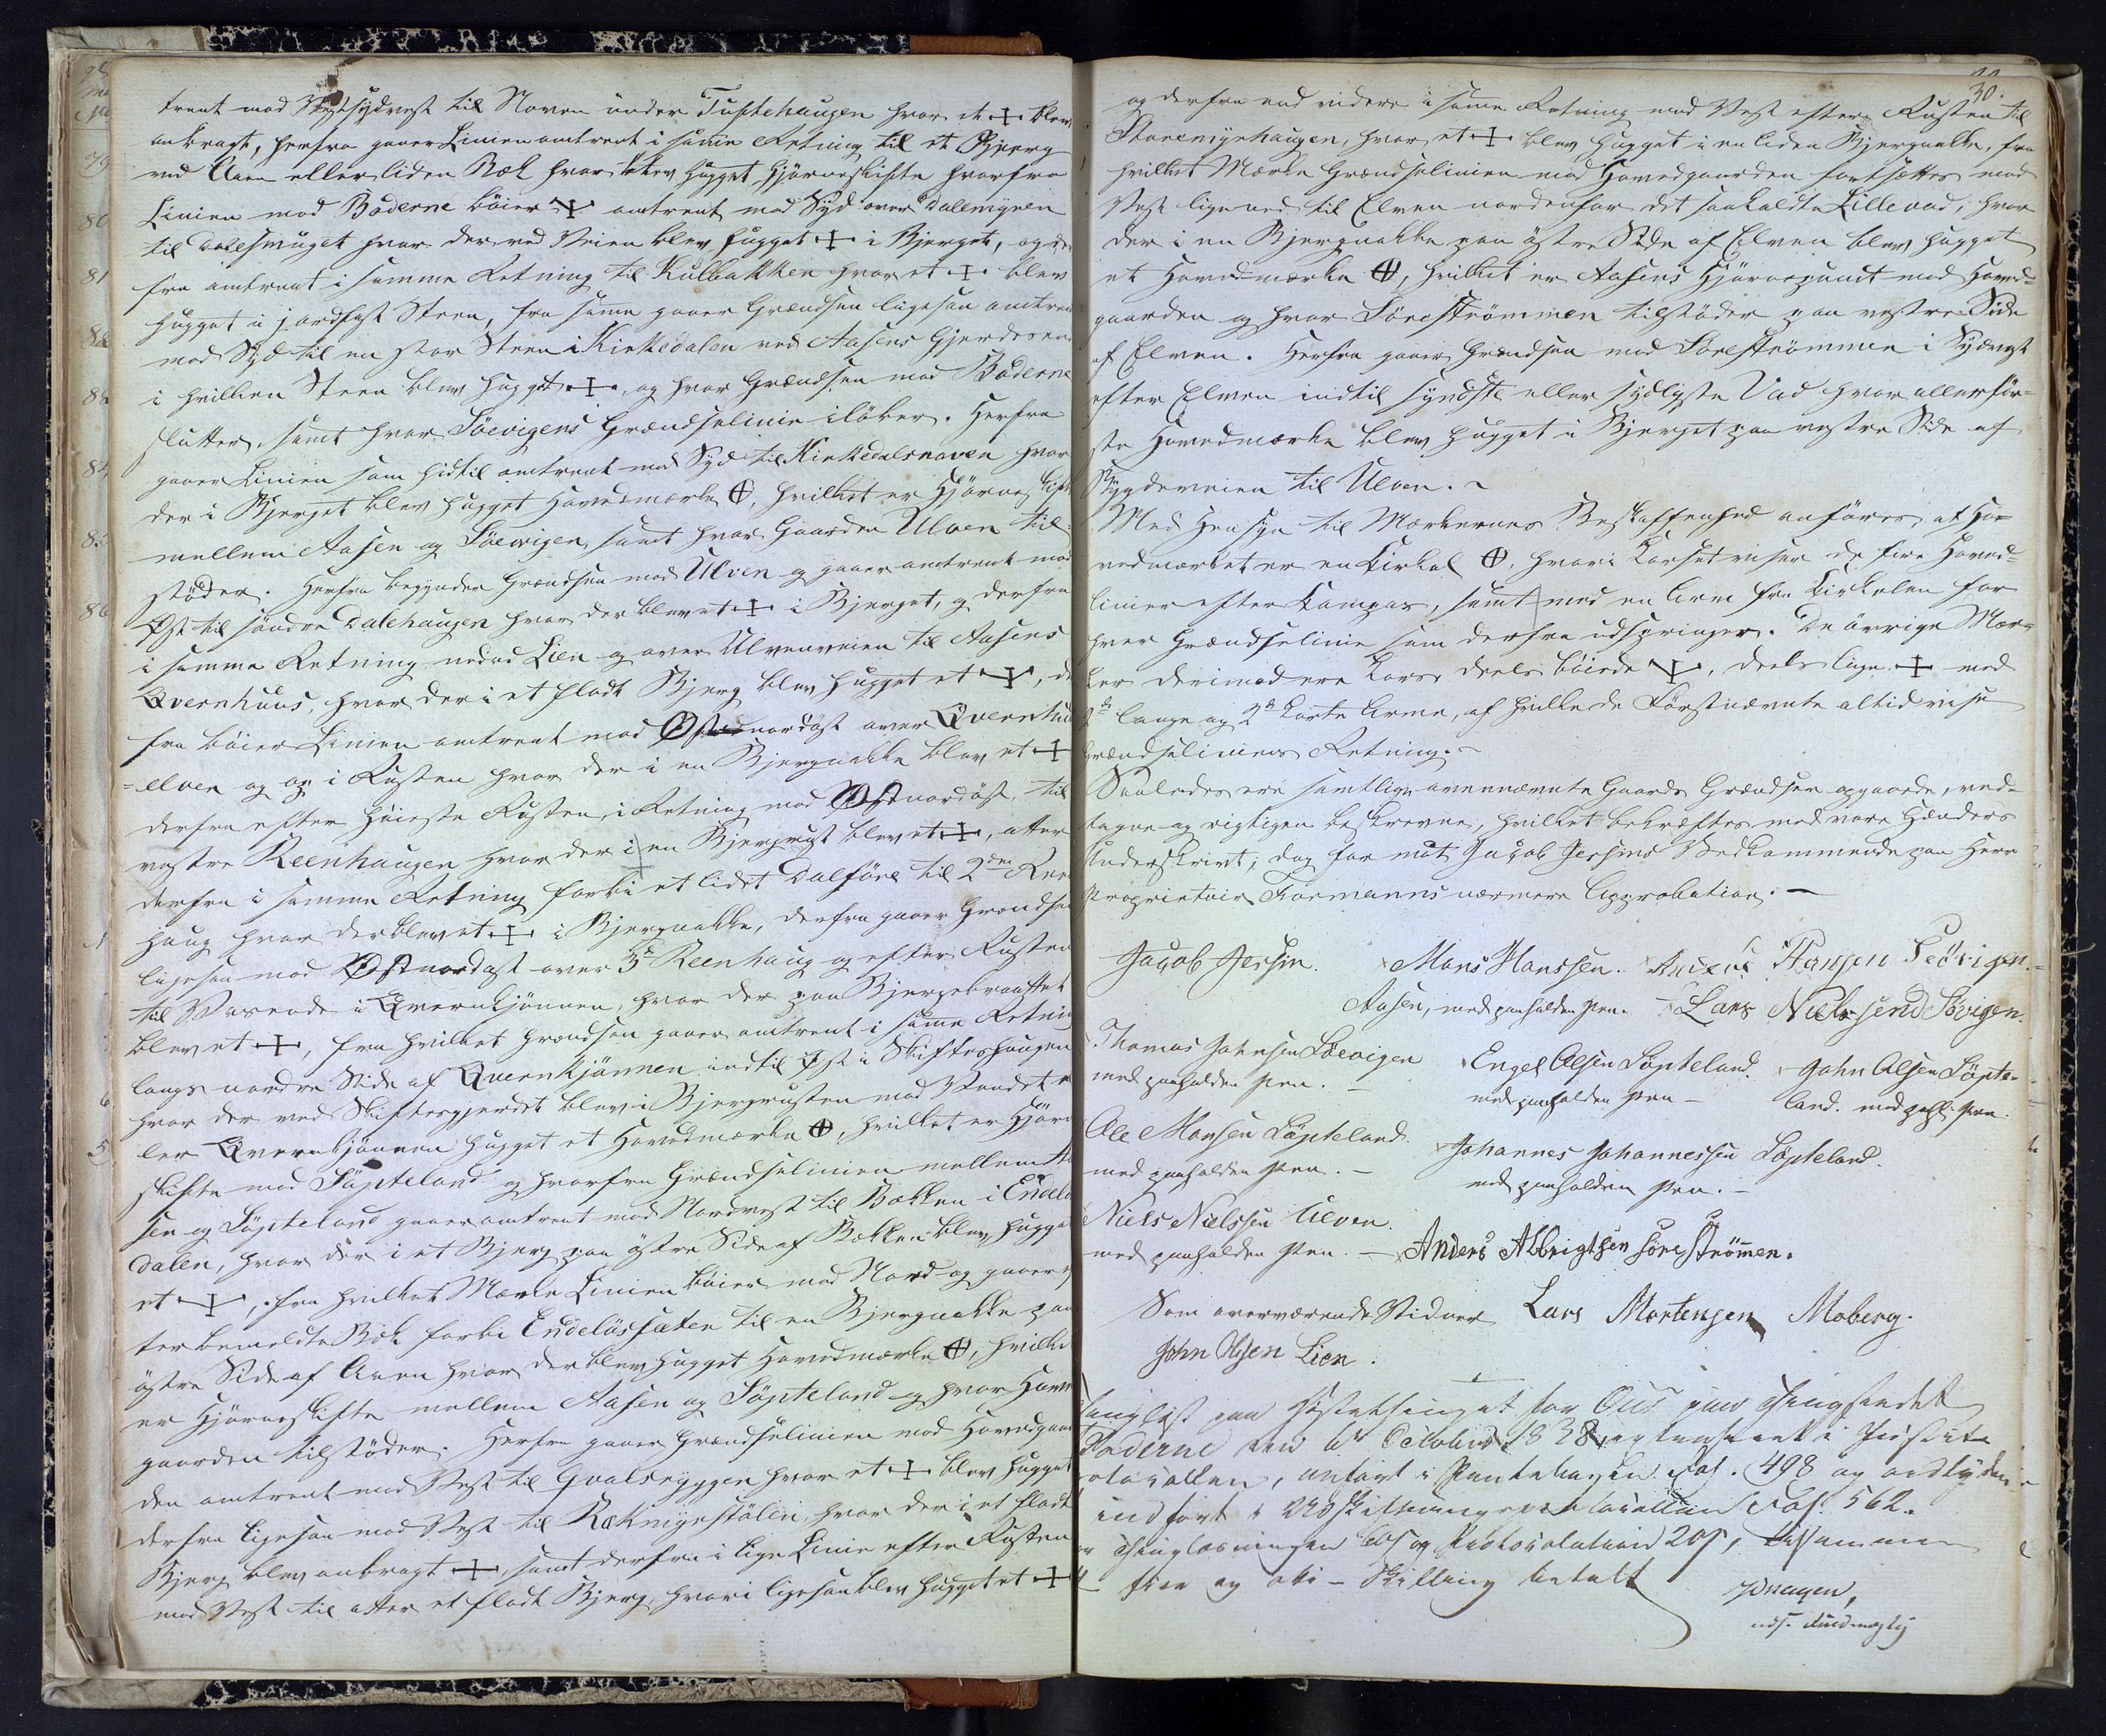 trent mod Vestsydvest til Noven under Tuftehaugen hvor et ┼ blev
anbragt, herfra gaaer Linien omtrent i samme Retning til et Bjerg
ved Aaen eller liden Bæk hvor blev hugget Hjørneskifte hvorfra
Linien mod Baderne bøier ┼ omtrent mod Syd over Dalemyren
til Dalesmuget hvor der ved Veien blev hugget ┼ i Bjerget, og der
fra omtrent i samme Retning til Kulbakken hvor et ┼ blev
hugget i jordfast Steen, fra samme gaaer Grændsen ligesaa omtrent
mod Syd til en stor Steen i Kirkedalen ved Aasens Gjerdesende
i hvilken Steen blev hugget ┼, og hvor Grændsen mod Baderne
slutter, samt hvor Søevigens Grændselinie iløber. Herfra
gaaer Linien som hidtil omtrent mod Syd til Kirkedalsnoven hvor
der i Bjerget blev hugget Hovedmærke ⊕, hvilket er Hjørneskifte
mellem Aasen og Søevigen, samt hvor Gaarden Ulven til-
støder. Herfra begynder Grændsen mod Ulven og gaaer omtrent mod
Øst til søndre Dalehaugen hvor der blev et ┼ i Bjerget, og derfra
i samme Retning nedad Lien og over Ulvenveien til Aasens
Qvernhuus, hvor der i et fladt Bjerg blev hugget et ┼, der
fra bøier Linien omtrent mod Østnordøst over Qvernhuus
=elven og op i Rusten hvor der i en Bjergnakke blev et ┼
derfra efter høieste Rusten, i Retning mod Østnordøst, til
vestre Reenhaugen hvor der i en Bjergrust blev et ┼, atter
derfra i samme Retning forbi et lidet Dalføre til 2den Reen
haug hvor der blev et ┼ i Bjergnakke, derfra gaaer Grændsen
ligesaa mod Østnordøst over 3die Reenhaug og efter Rusten
til Vasende i Qvernkjønnen, hvor der paa Bjergebrauttet
blev et ┼, fra hvilket Grændsen gaaer omtrent i samme Retning
langs nordre Side af Qvernkjønnen indtil Øst i Skifteshaugen
hvor der ved Skiftesgjerdet blev i Bjergrusten mod Vandet el
ler Qvernkjønnen hugget et Hovedmærke ⊕, hvilket er Hjørne
skifte mod Søpteland og hvorfra Grændselinien mellem Aa
sen og Søpteland gaaer omtrent mod Nordvest til Bækken i Endeløs
dalen, hvor der i et Bjerg paa østre Side af Bækken blev hugget
et ┼, fra hvilket Mærke Linien bøier mod Nord og gaaer ef
ter bemeldte Bæk forbi Endeløssæten til en Bjergnakke paa
østre Side af Aaen hvor der blev hugget Hovedmærke ⊕, hvilket
er Hjørneskifte mellem Aasen og Søpteland og hvor Hoved
gaarden tilstøder. Herfra gaaer Grændselinien mod Hovedgaar
den omtrent mod Vest til Hvalryggen hvor et ┼ blev hugget
derfra ligesaa mod Vest til Rækmyrstølen, hvor der i et fladt
Bjerg blev anbragt ┼, samt derfra i lige Linie efter Rusten
mod Vest til atter et fladt Bjerg, hvori ligesaa blev hugget et ┼
30.
og derfra end videre i samme Retning mod Vest efter Rusten til
Storemyrhaugen, hvor et ┼ blev hugget i en liden Bjergnakke, fra
hvilket Mærke Grændselinien mod Hovedgaarden fortsættes mod
Vest lige ned til Elven nordenfor det saakaldte Lillevad, hvor
der i en Bjergnakke paa østre Side af Elven blev hugget
et Hovedmærke ⊕, hvilket er Aasens Hjørnepunct mod Hoved-
gaarden og hvor Sørestrømmen tilstøder paa vestre Side
af Elven. Herfra gaaer Grændsen mod Sørestrømmen i Sydvest
efter Elven indtil syndste eller sydligste Vad hvor allerfør-
ste Hovedmærke blev hugget i Bjerget paa vestre Side af
Bygdeveien til Ulven.
Med Hensyn til Mærkernes Beskaffenhed anføres, at Ho-
vedmærket er en Cirkel ⊕, hvori Korset viser de fire Hoved-
linier efter Kompas, samt med en Arm fra Cirkelen for
hver Grændselinie som derfra udspringer. De øvrige Mær-
ker derimod ere Kors deels bøiede ┼, deels lige ┼ med
2de lange og 2de korte Arme, af hvilke de Førstnævnte altid vise
Grændseliniens Retning.
Saaledes ere samtlige ovennævnte Gaards Grændser opgaaede, ved-
tagne og rigtigen beskrevne, hvilket bekræftes med vore Hænders
Underskrivt; dog for mit Jacob Jersins Vedkommende paa Herr
Proprietair Formanns nærmere Approbation. —
Jacob Jersin. Mons Hanssen. Anders Hansen Seövigen.
Aasen, med paaholden Pen. Lars Nielssend Sövigen.
Thomas Johnsen Søevigen Engel Olsen Søpteland. John Olsen Søpte-
med paaholden Pen. — med paaholden Pen — land. med pahl. Pen.
Ole Monsen Søpteland. Johannes Johannessen Søpteland.
med paaholden Pen. — med paaholden Pen. —
Niels Nielssen Ulven.
med paaholden Pen. — Anders Albrigtsen Söreströmen.
Som overværende Vidner Lars Mortensen Moberg.
John Olsen Lien.
Thinglæst paa Høstethinget for Ous paa Thingstedet
Baderne den October 1838, extraheret i Justits
otocollen, anført i Pantebogen Fol. 498 og ordlydende
indført i Udskiftningsprotocollen Fol. 562.
Thinglæsningen og Protocolation 20s, tilsammen
fire og otti – Skilling betalt
Pragen,
eds. Fuldmægtig